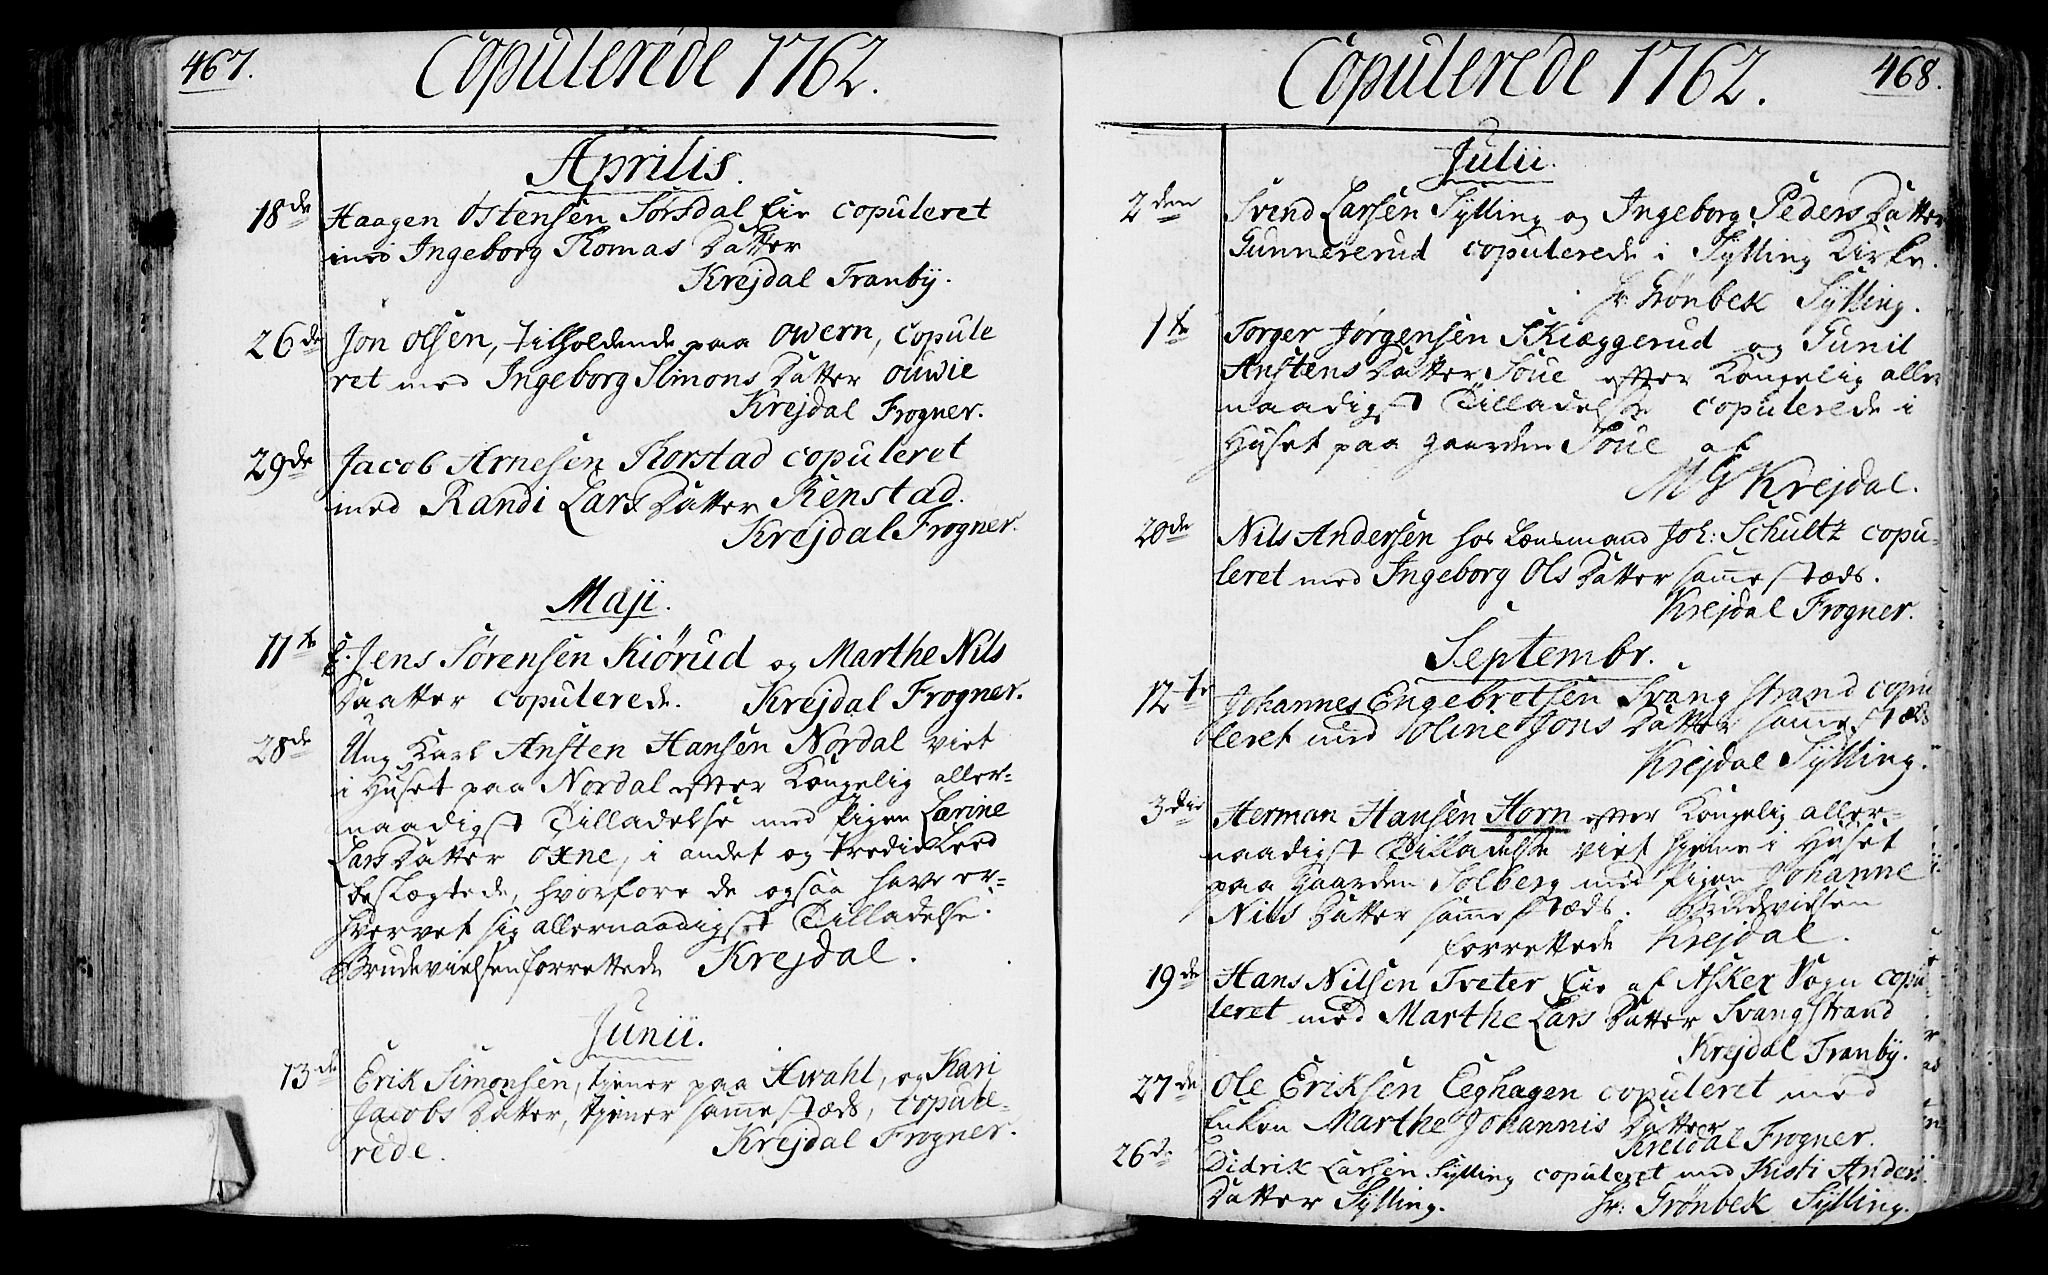 467.
Copulerede 1762.
Aprilis.
18de Haagen Ostensen Sørsdal Lir copuleret
med Ingeborg Thomas Datter
Krejdal Tranby.
26de Jon Olsen, tilholdende paa Owern, Copule
ret med Ingeborg Simons Datter Ouwie
Krejdal Frogner.
29de Jacob Arnesen Korstad copuleret
med Randi Lars Datter Renstad.
Krejdal Frogner.
Maji.
11te Jens Sørensen Kiørud og Marthe Nils
Daatter copulerede. Krejdal Frogner.
28de Ung Karl Ansten Hansen Nordal viet
i Huset paa Nordal efter Kongelig aller-
naadigst Tilladelse med Pigen Larine
Lars Datter Oxne, i andet og tredie Leed
beslægtede, hvorfore de ogsaa have er-
hvervet sig allernaadigst Tilladelse.
Brudevielsen forrettede Krejdal.
Junii.
13de Erik Simonsen, tjener paa Hwahl, og Kari
Jacobs Datter, tjener samme stæds, copule-
rede. Krejdal Frogner.
468.
Copulerede 1762.
Julii.
2den Svend Larsen Sylling og Ingeborg Peders Datter
Gunnererud copulerede i Sylling Kirke.
Hr: Grønbek Sylling.
1te Torger Jørgensen Skiæggerud og Gunil
Anstens Datter Soue efter Kongelig aller
naadigst Tilladelse copulerede i
Huset paa gaarden Soue af
MG Krejdal.
20de Nils Andersen hos Lensmand Joh: Schultz copu-
leret med Ingeborg Ols Datter samme stæds.
Krejdal Frogner.
Septembr.
12te Johannes Engebretsen Svangstrand copu
leret med Oline Jons Datter samme stæds
Krejdal Sylling.
3die Herman Hansen Horn efter Kongelig aller-
naadigst Tilladelse viet hjeme i Huset
paa Gaarden Solberg med Pigen Johanne
Nils Datter samme stæds. Brudevielsen
forrettede Krejdal.
19de Hans Nilsen Tveter Lir af Asker Sogn copu
leret med Marthe Lars Datter Svangstrand
Krejdal Tranby.
27de Ole Eriksen Eeghagen copuleret med
Enken Marthe Johannis Datter
Krejdal Frogner.
26de Didrik Larsen Sylling copuleret med Kisti Anders
Datter Sylling. Hr: Grønbek Sylling.